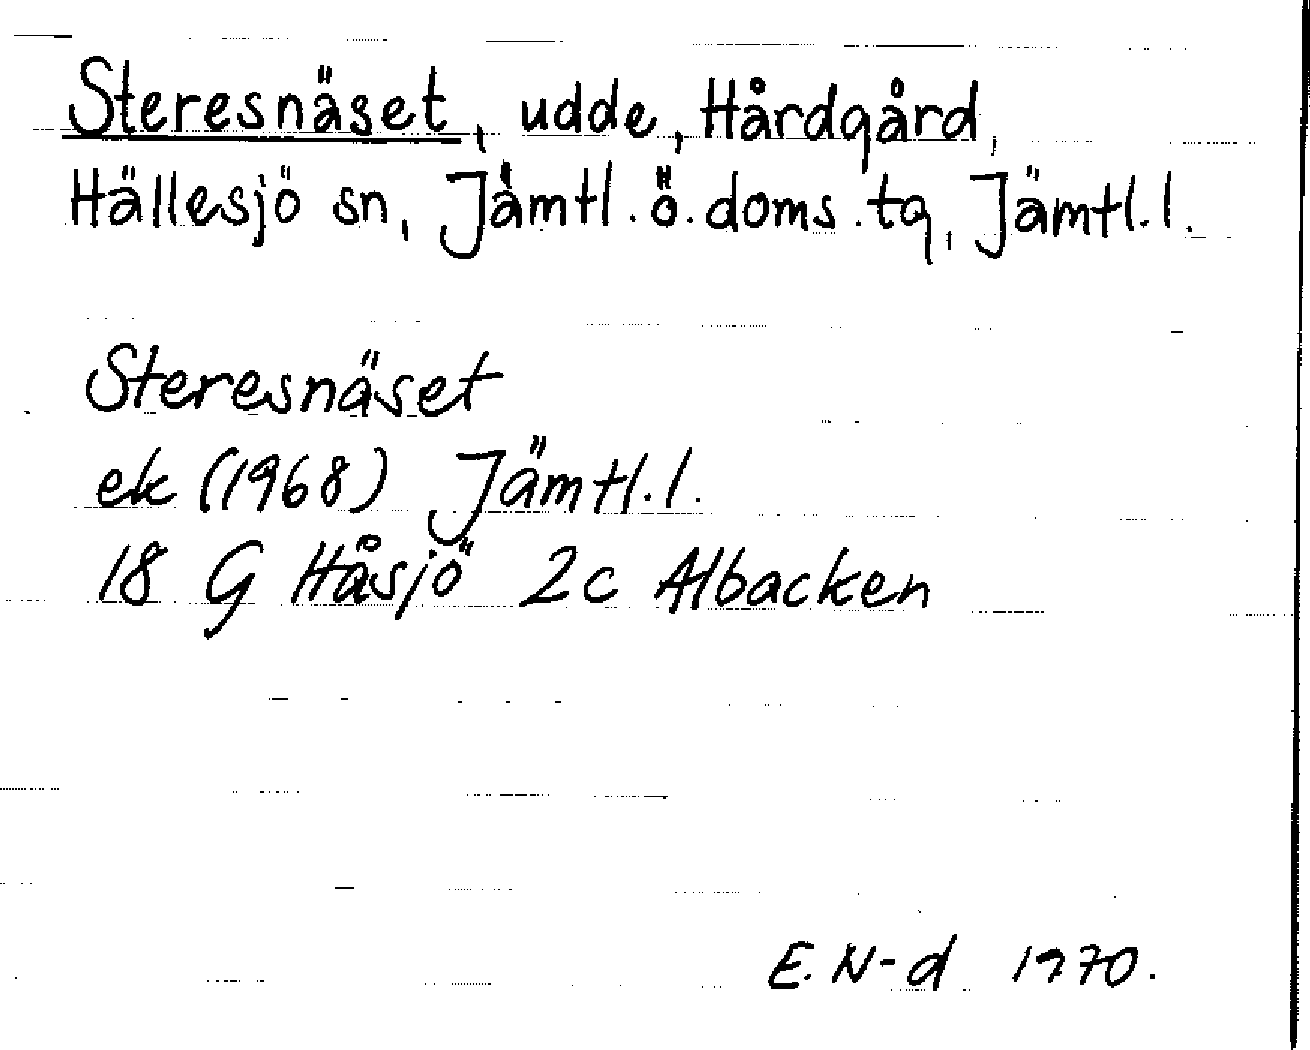 Steresnäset, udde, Hårdgård,
Hällesjö sn, Jämtl. ö. doms. tg, Jämtl. l.
Steresnäset
ek (1968) Jämtl. l.
18 G Håsjö 2c Albacken
E. N-d 1970.